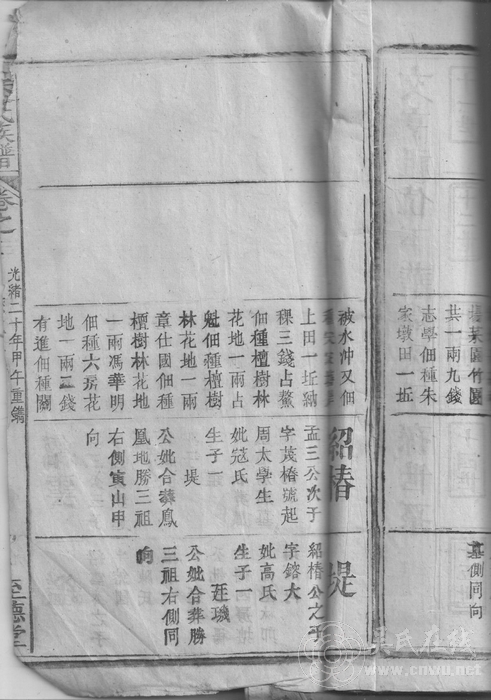 菜園竹園
共一兩九錢
志學佃種朱
家墩田一坵
墓側同向
被水冲又佃
上田一坵納
稞三錢占鰲
佃種檀樹林
花地一兩占
魁佃種檀樹
林花地一兩
章仕國佃種
檀樹林花地
一兩馮華明
佃種六房花
地一兩二錢
有進佃種關
紹椿
孟三公次子
字茂椿號起
周太學生
妣寇氏
生子一
堤
公妣合葬鳳
凰地勝三祖
右側寅山申
向
堤
紹椿公之子
字鎔大
妣高氏
生子一
廷璣
公妣合葬勝
三祖右側同
向
氏族譜
卷之
光緒二十年甲午重鐫
至德堂
吳氏在線
www.cnwu.net